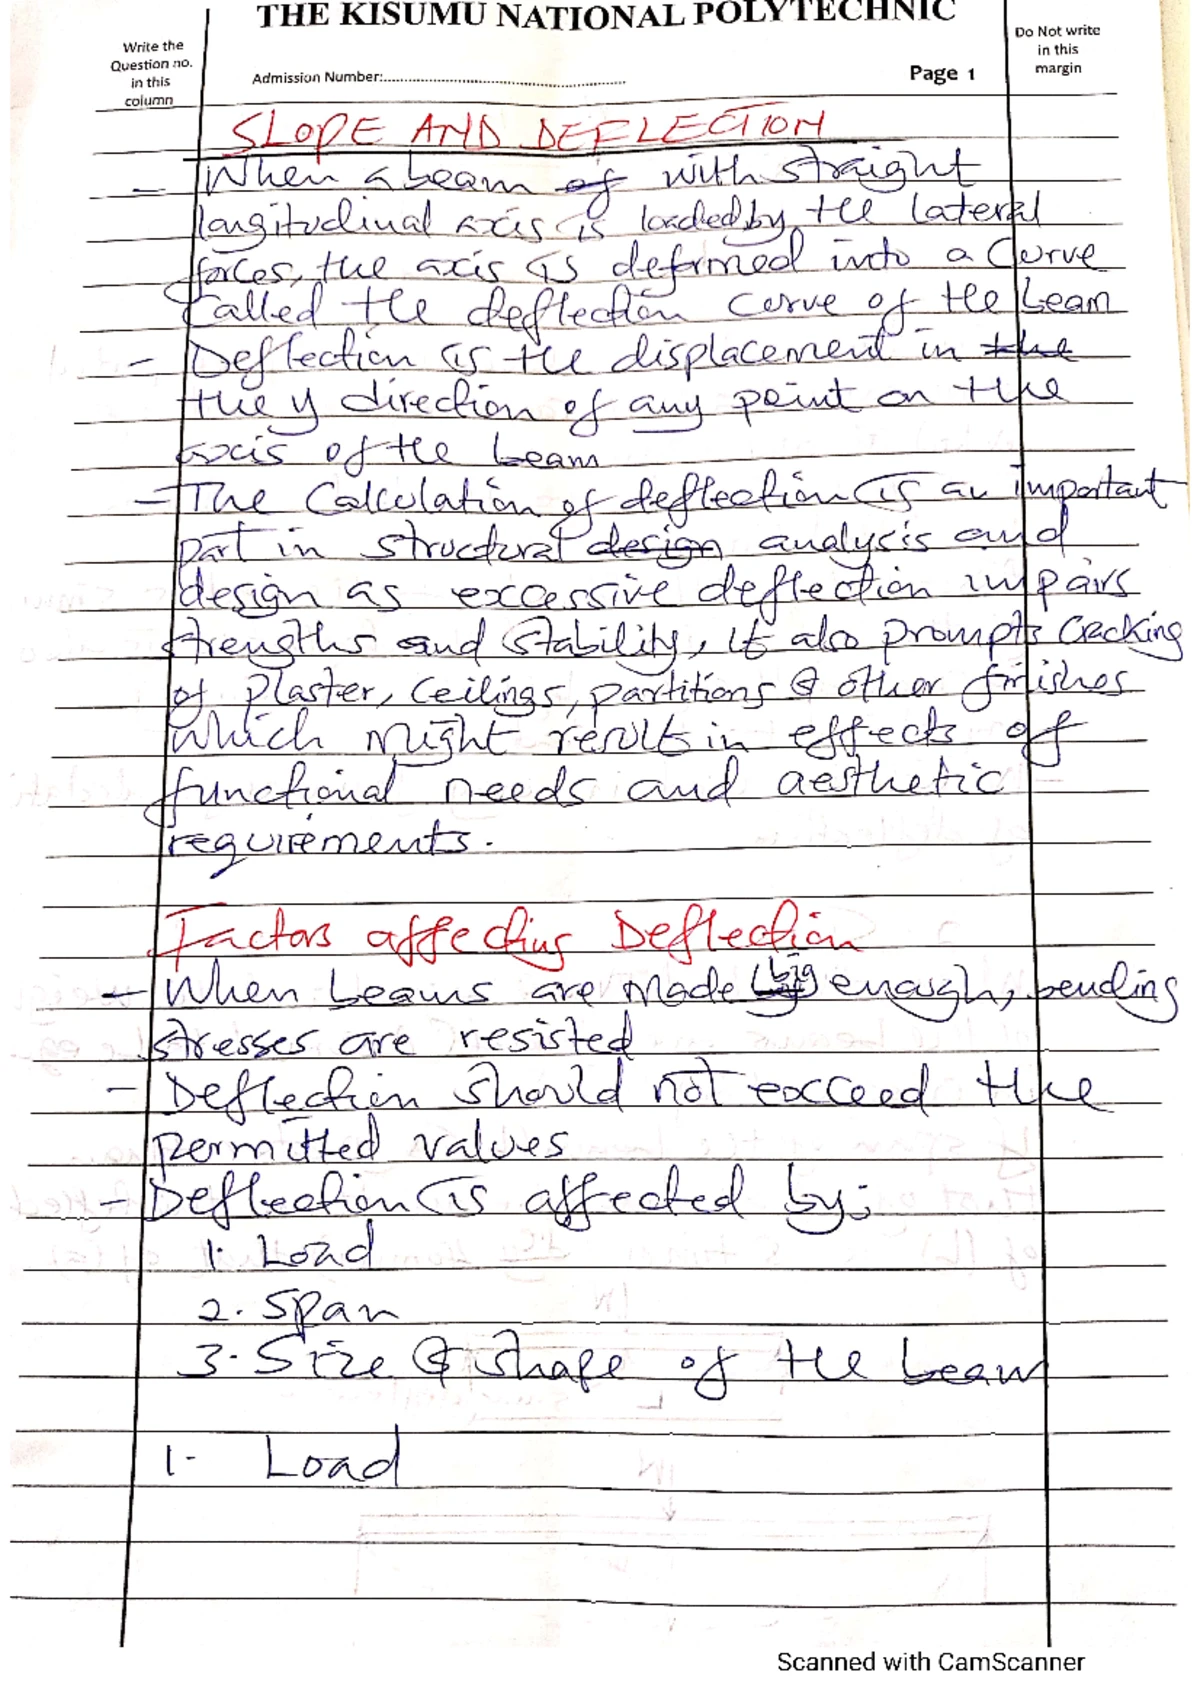 THE KISUMU NATIONAL POLYTECHNIC
Write the
Question no.
in this
column
Admission Number:
Page 1
Do Not write
in this
margin
SLOPE AND DEFLECTION
- When a beam of with straight
longitudinal axis is loaded by the lateral
forces, the axis is deformed into a curve
called the deflection curve of the beam
- Deflection is the displacement in the
the y direction of any point on the
axis of the beam
- The Calculation of deflection is an important
part in structural design analysis and
design as excessive deflection impairs
strengths and stability, it also prompts cracking
of plaster, ceilings, partitions & other finishes
which might result in effects of
functional needs and aesthetic
requirements.
Factors affecting Deflection
- When beams are made big enough, bending
stresses are resisted
- Deflection should not exceed the
permitted values
- Deflection is affected by:
1. Load
2. Span
3. Size & shape of the beam
1- Load
Scanned with CamScanner